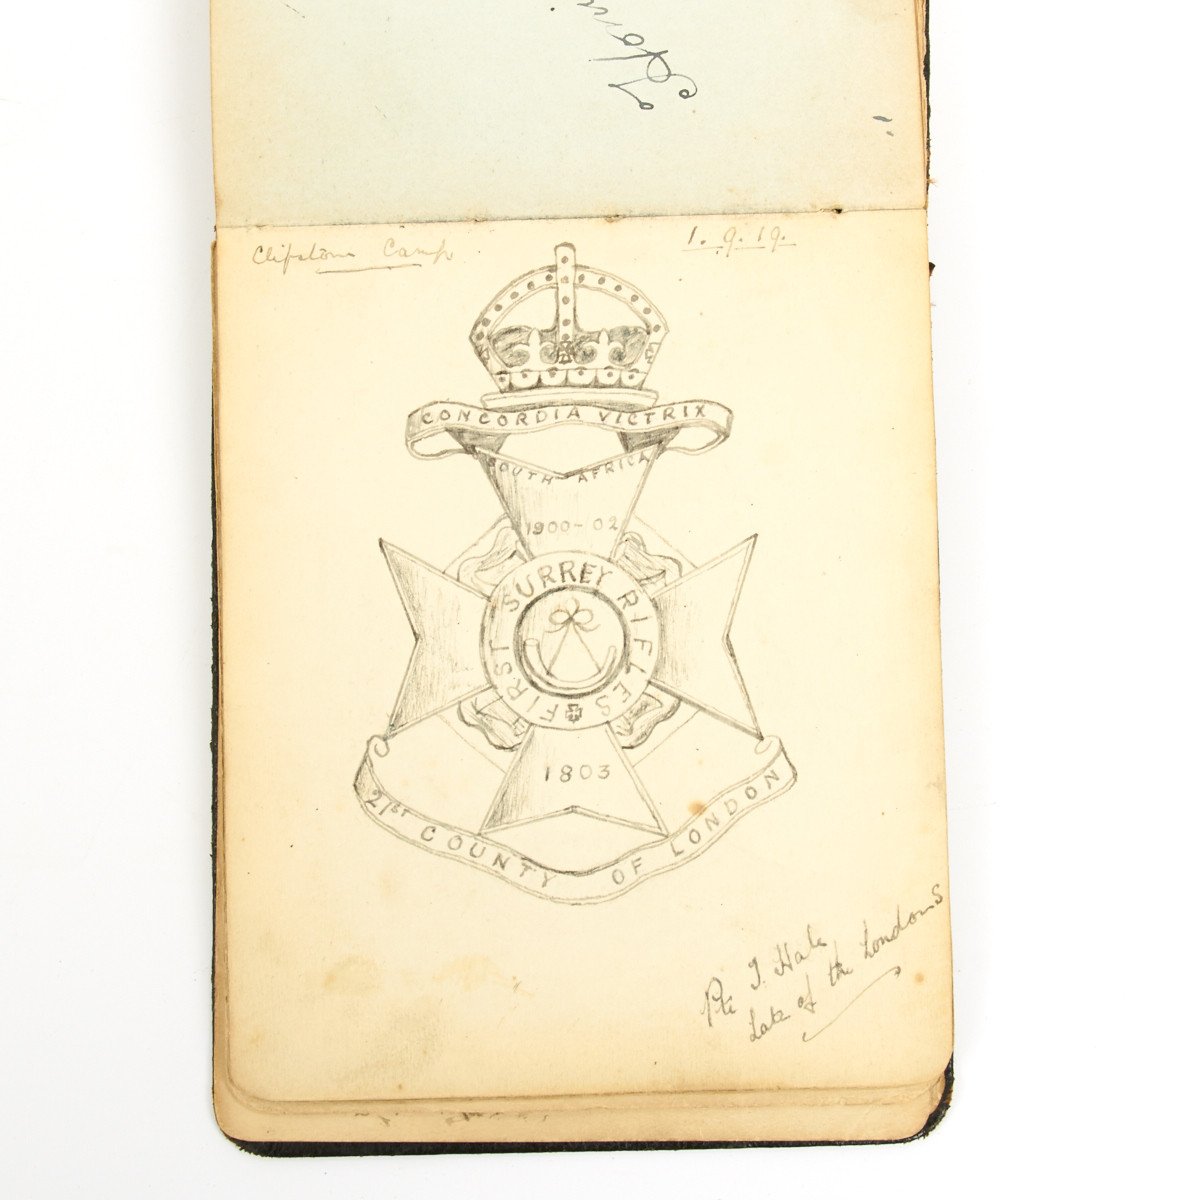 Clipstone Camp
1.9.19.
CONCORDIA VICTRIX
SOUTH AFRICA
1900-02
FIRST SURREY RIFLES
1803
21ST COUNTY OF LONDON
Pte T. Hale
Late of the Londons